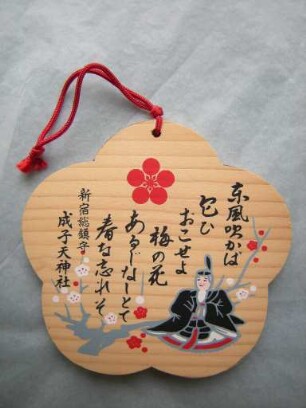 東風吹かば
匂ひ
おこせよ
梅の花
あるじなしとて
春な忘れそ
新宿総鎮守
成子天神社